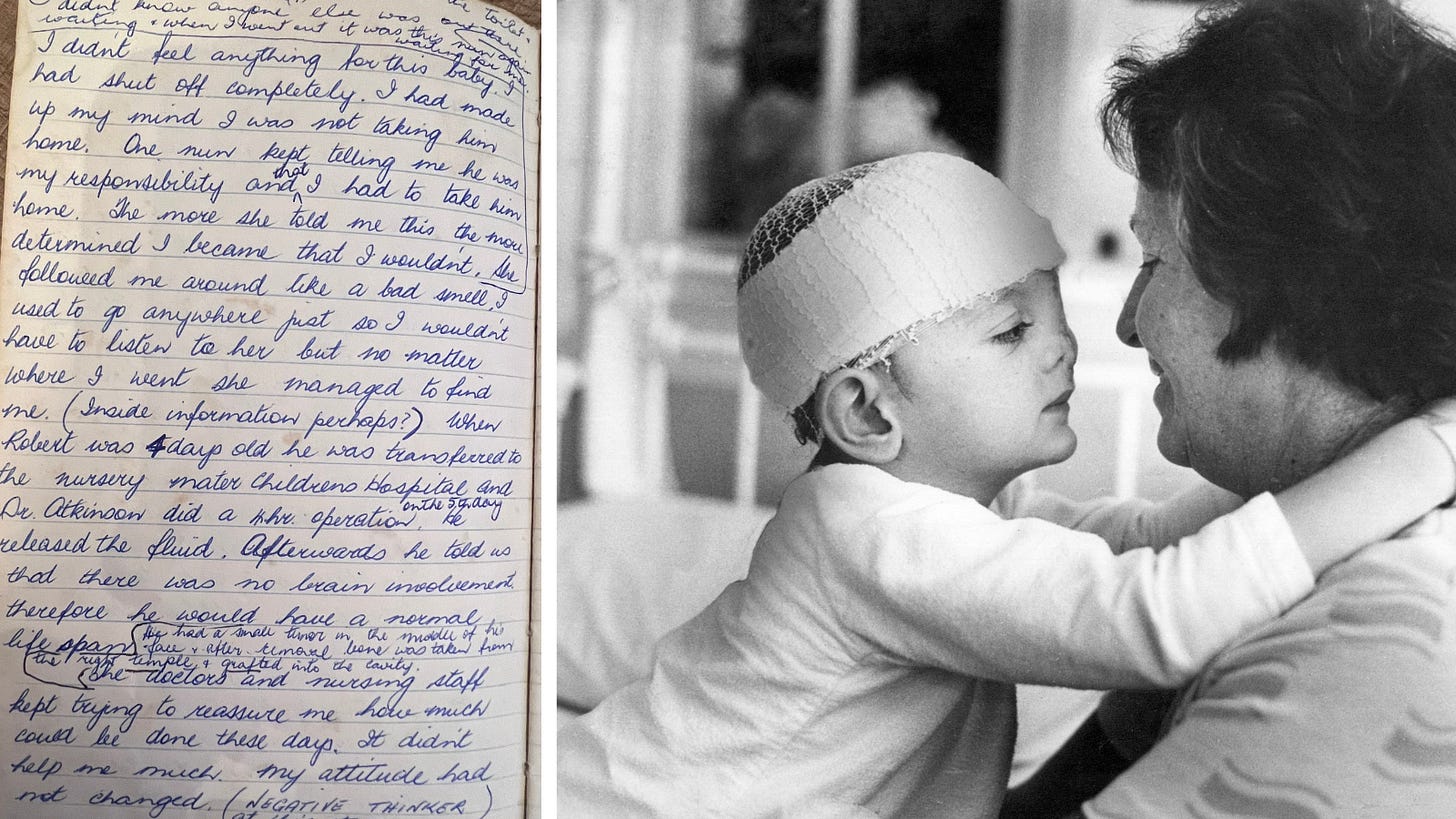 the toilet.
didn't know anyone else was out there
waiting & when I went out it was this nun again
waiting for me.
I didn't feel anything for this baby. I
had shut off completely. I had made
up my mind I was not taking him
home. One nun kept telling me he was
my responsibility and that I had to take him
home. The more she told me this the more
determined I became that I wouldn't. She
followed me around like a bad smell, I
used to go anywhere just so I wouldn't
have to listen to her but no matter
where I went she managed to find
me. (Inside information perhaps?) When
Robert was 4 days old he was transferred to
the nursery mater Childrens Hospital and
on the 5th day
Dr. Atkinson did a 4hr. operation, he
released the fluid. Afterwards he told us
that there was no brain involvement.
therefore he would have a normal
life span (He had a small tumor in the middle of his
face & after removal bone was taken from
the right temple & grafted into the cavity.
The doctors and nursing staff
kept trying to reassure me how much
could be done these days. It didn't
help me much. My attitude had
not changed. (NEGATIVE THINKER)